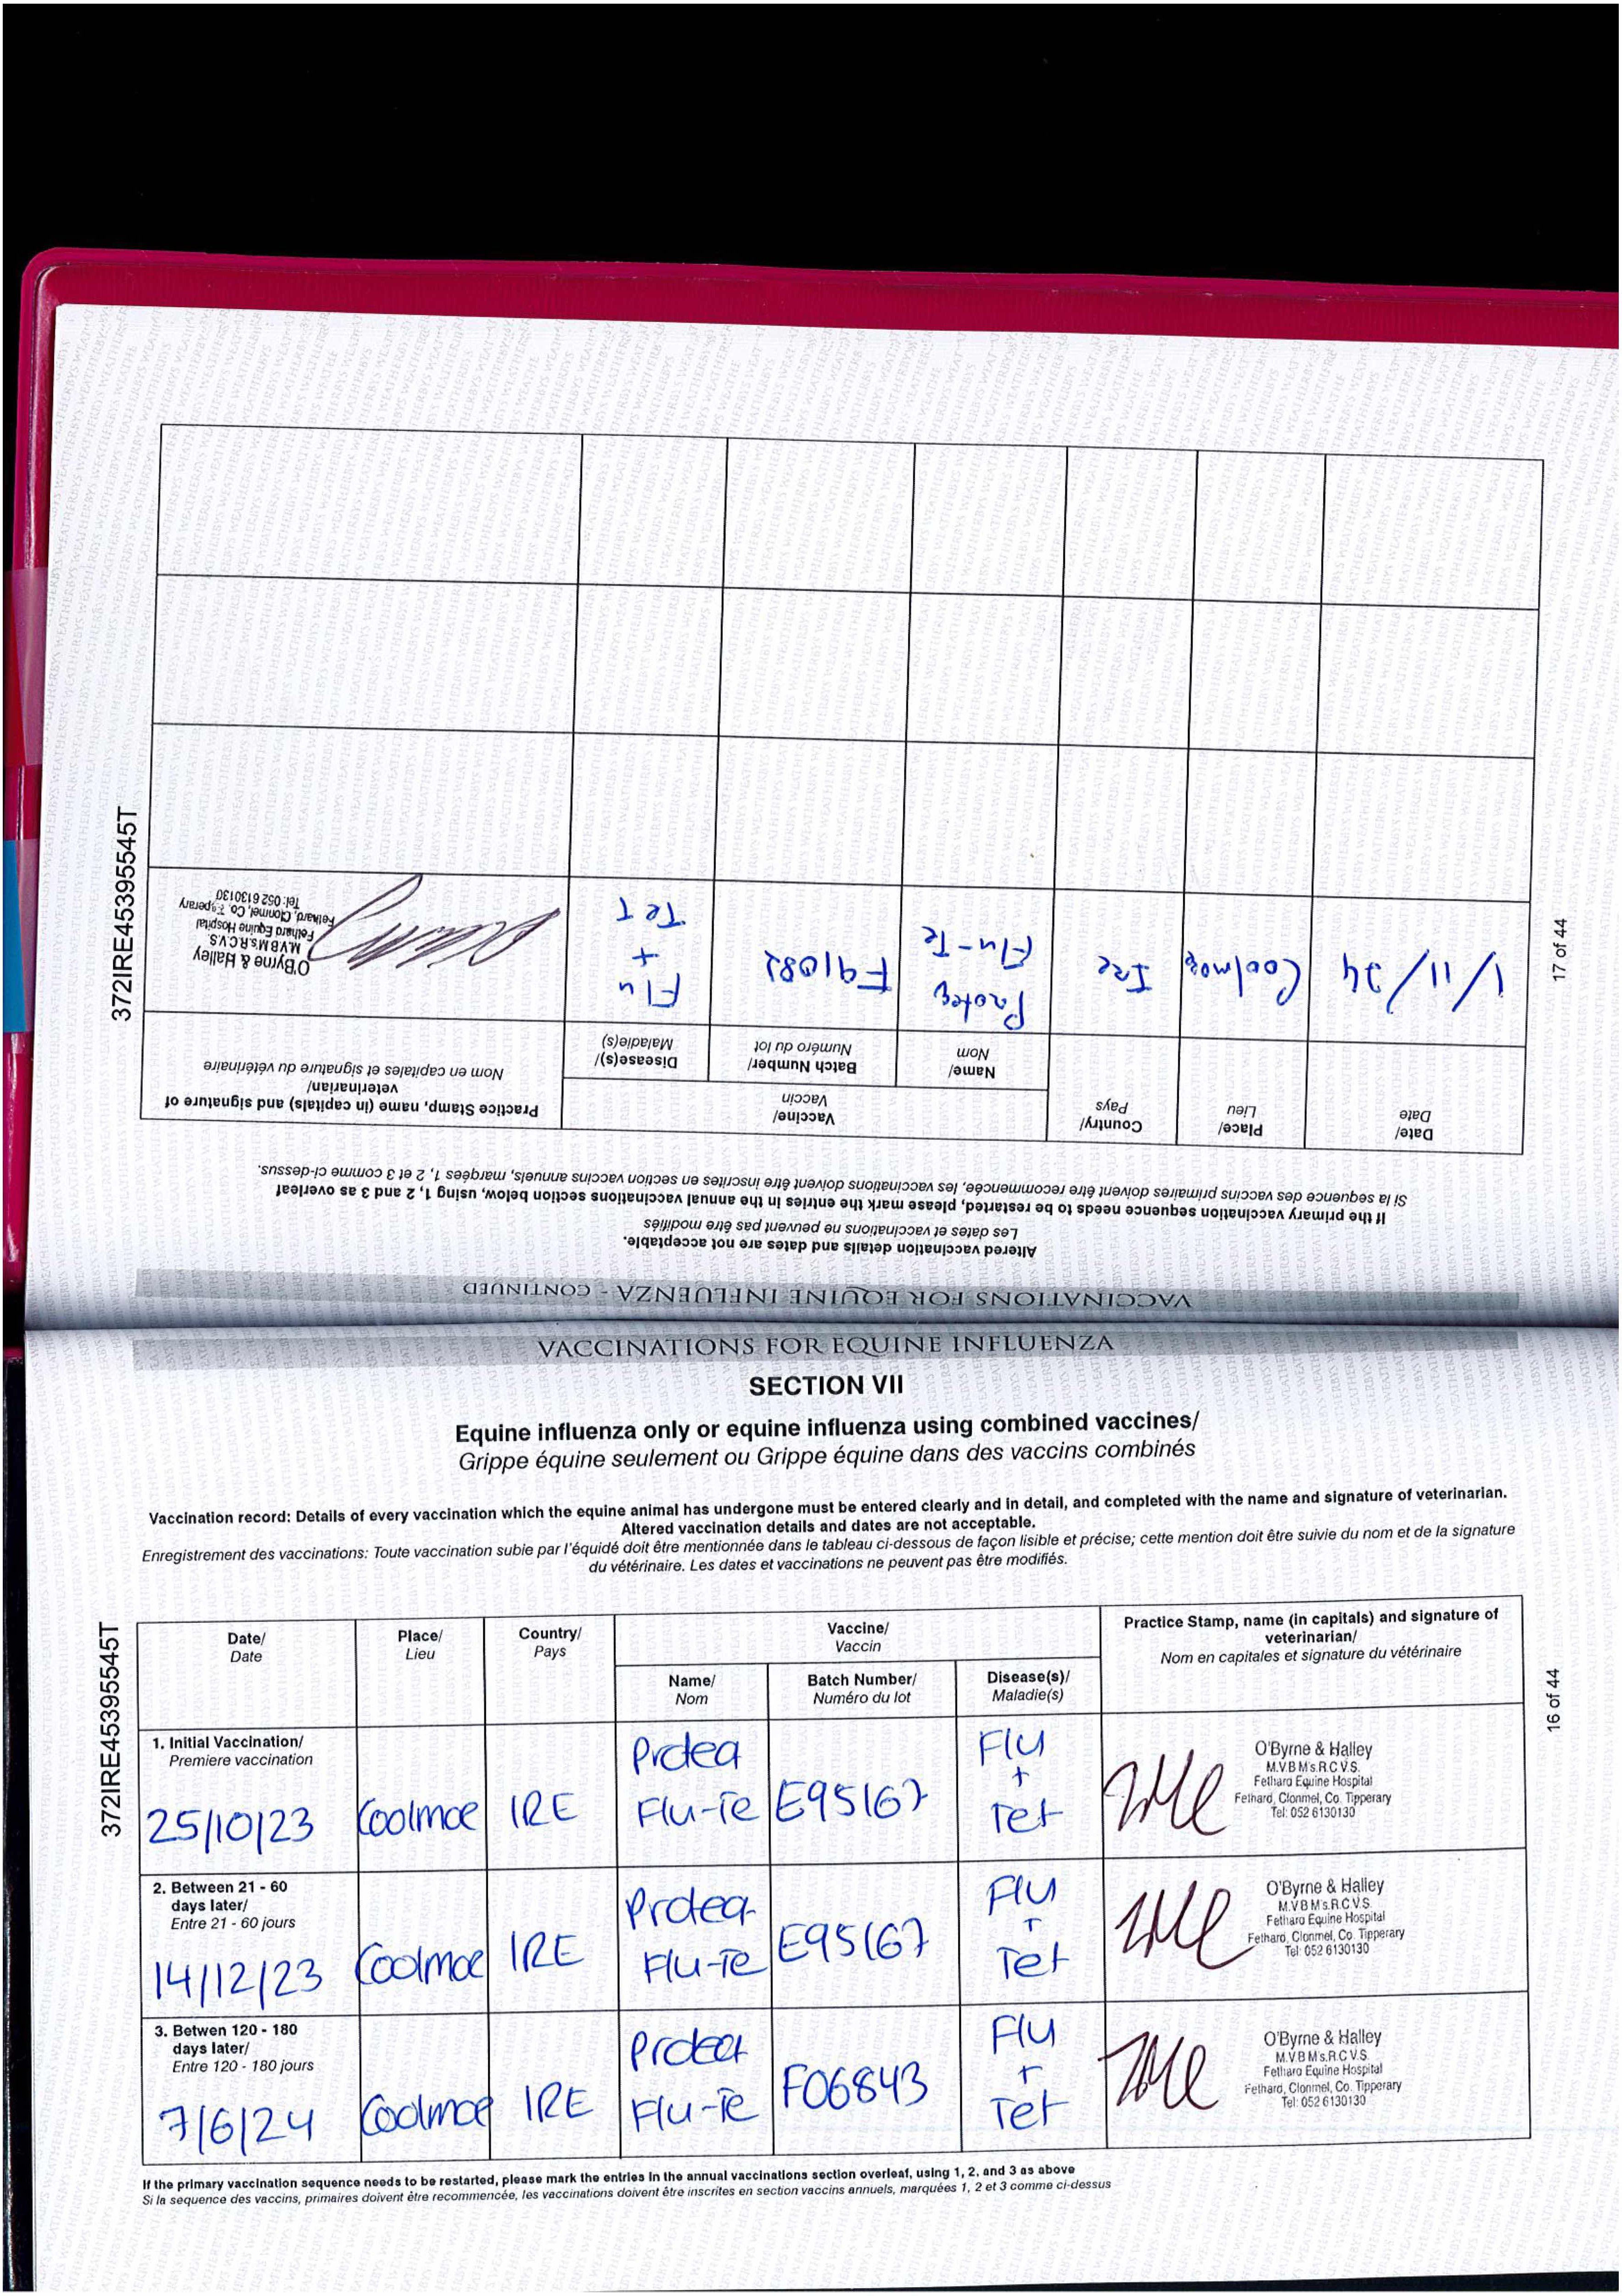 VACCINATIONS FOR EQUINE INFLUENZA
SECTION VII
Equine influenza only or equine influenza using combined vaccines/
Grippe équine seulement ou Grippe équine dans des vaccins combinés
Vaccination record: Details of every vaccination which the equine animal has undergone must be entered clearly and in detail, and completed with the name and signature of veterinarian.
Altered vaccination details and dates are not acceptable.
Enregistrement des vaccinations: Toute vaccination subie par l'équidé doit être mentionnée dans le tableau ci-dessous de façon lisible et précise; cette mention doit être suivie du nom et de la signature
du vétérinaire. Les dates et vaccinations ne peuvent pas être modifiés.
372IRE45395545T
16 of 44
Date/
Date
Place/
Lieu
Country/
Pays
Vaccine/
Vaccin
Name/
Nom
Batch Number/
Numéro du lot
Disease(s)/
Maladie(s)
Practice Stamp, name (in capitals) and signature of
veterinarian/
Nom en capitales et signature du vétérinaire
1. Initial Vaccination/
Premiere vaccination
25/10/23
Coolmoe
IRE
Protea
Flu-Te
E95167
Flu
+
Tet
O'Byrne & Halley
M.V.B M's.R.C.V.S.
Fethard Equine Hospital
Fethard, Clonmel, Co. Tipperary
Tel: 052 6130130
2. Between 21 - 60
days later/
Entre 21 - 60 jours
14/12/23
Coolmoe
IRE
Protea
Flu-Te
E95167
Flu
+
Tet
O'Byrne & Halley
M.V.B M's.R.C.V.S.
Fethard Equine Hospital
Fethard, Clonmel, Co. Tipperary
Tel: 052 6130130
3. Betwen 120 - 180
days later/
Entre 120 - 180 jours
7/6/24
Coolmoe
IRE
Protea
Flu-Te
F06843
Flu
+
Tet
O'Byrne & Halley
M.V.B M's.R.C.V.S.
Fethard Equine Hospital
Fethard, Clonmel, Co. Tipperary
Tel: 052 6130130
If the primary vaccination sequence needs to be restarted, please mark the entries in the annual vaccinations section overleaf, using 1, 2, and 3 as above
Si la sequence des vaccins, primaires doivent être recommencée, les vaccinations doivent être inscrites en section vaccins annuels, marquées 1, 2 et 3 comme ci-dessus
VACCINATIONS FOR EQUINE INFLUENZA - CONTINUED
Altered vaccination details and dates are not acceptable.
Les dates et vaccinations ne peuvent pas être modifiés
If the primary vaccination sequence needs to be restarted, please mark the entries in the annual vaccinations section below, using 1, 2 and 3 as overleaf
Si la sequence des vaccins primaires doivent être recommencée, les vaccinations doivent être inscrites en section vaccins annuels, marquées 1, 2 et 3 comme ci-dessus.
372IRE45395545T
17 of 44
Date/
Date
Place/
Lieu
Country/
Pays
Vaccine/
Vaccin
Name/
Nom
Batch Number/
Numéro du lot
Disease(s)/
Maladie(s)
Practice Stamp, name (in capitals) and signature of
veterinarian/
Nom en capitales et signature du vétérinaire
1/11/24
Coolmoe
Ire
Proteq
Flu-Te
F91082
Flu
+
Tet
O'Byrne & Halley
M.V.B M's.R.C.V.S.
Fethard Equine Hospital
Fethard, Clonmel, Co. Tipperary
Tel: 052 6130130